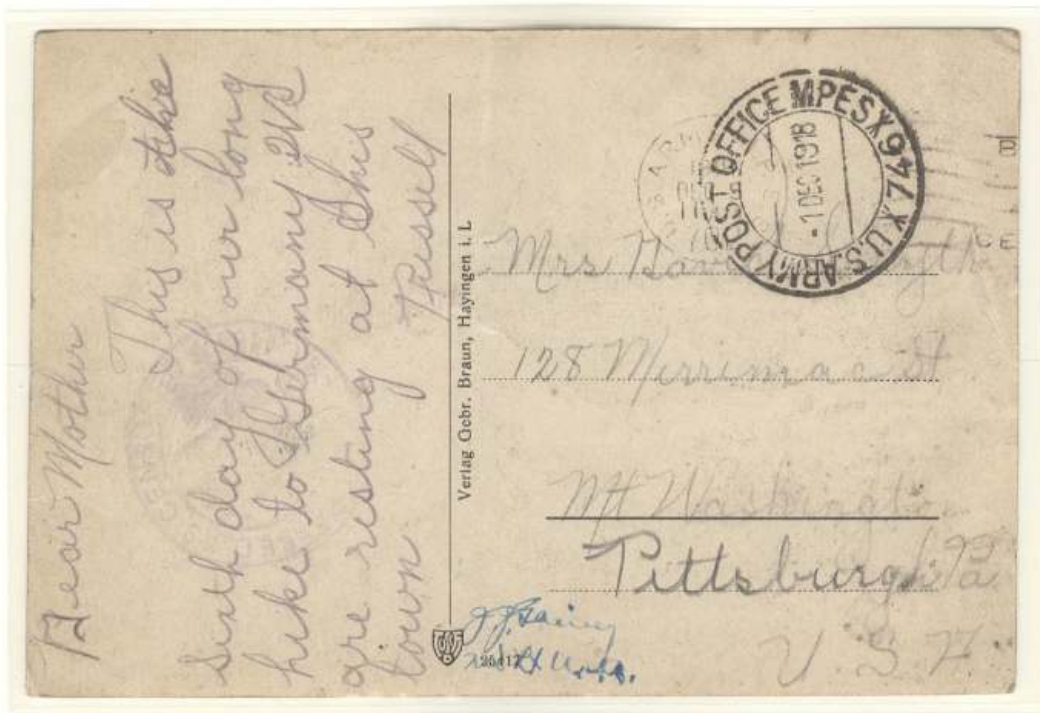 Dear Mother
This is the
sixth day of our long
hike to Germany we
are resting at this
town
Russell
Verlag Gebr. Braun, Hayingen i. L
U.S. ARMY POST OFFICE M.P.E.S. * 746 *
-1 DEC 1918
Mrs
128 Merrimac St
Mt Washington
Pittsburgh Pa
U. S. A.